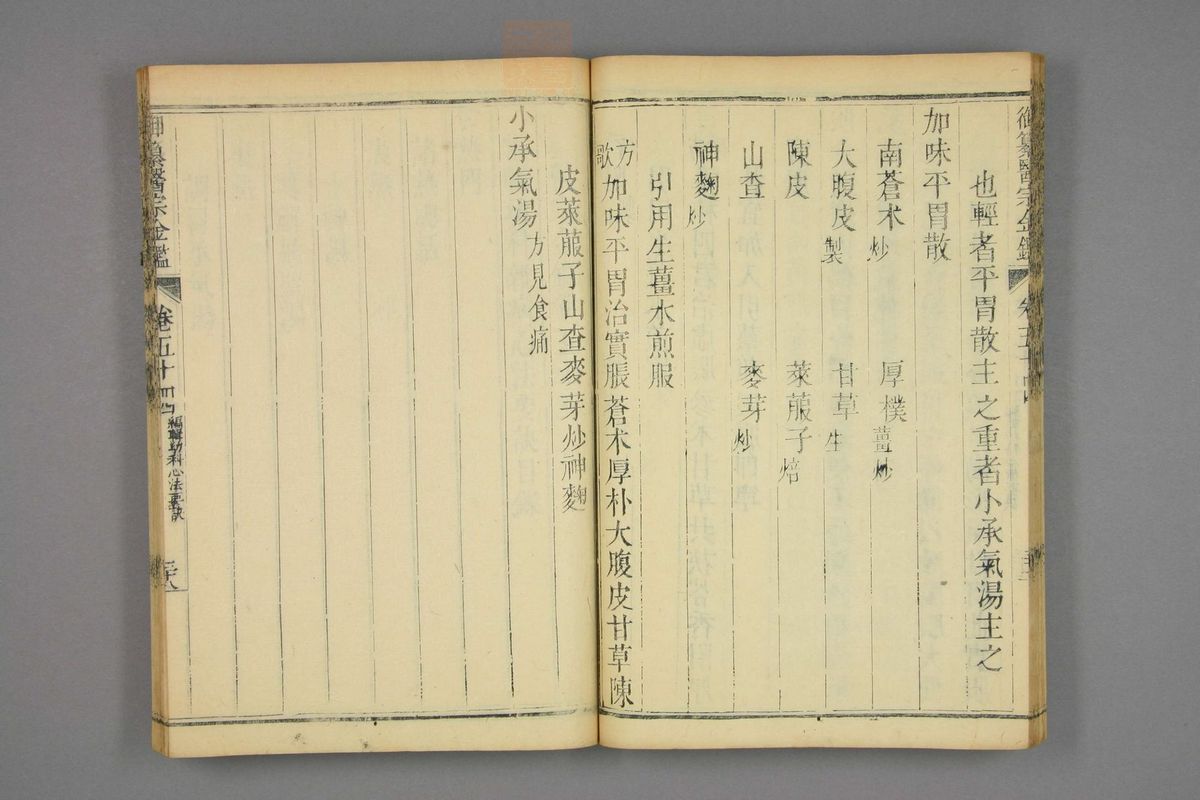 御纂醫宗金鑑 卷五十四
也輕者平胃散主之重者小承氣湯主之
加味平胃散
南蒼朮炒 厚樸薑炒
大腹皮製 甘草生
陳皮 萊菔子焙
山查 麥芽炒
神麯炒
引用生薑水煎服
方歌 加味平胃治實脹蒼术厚朴大腹皮甘草陳
皮萊菔子山查麥芽炒神麯
小承氣湯方見食痛
御纂醫宗金鑑 卷五十四 編輯幼科心法要訣